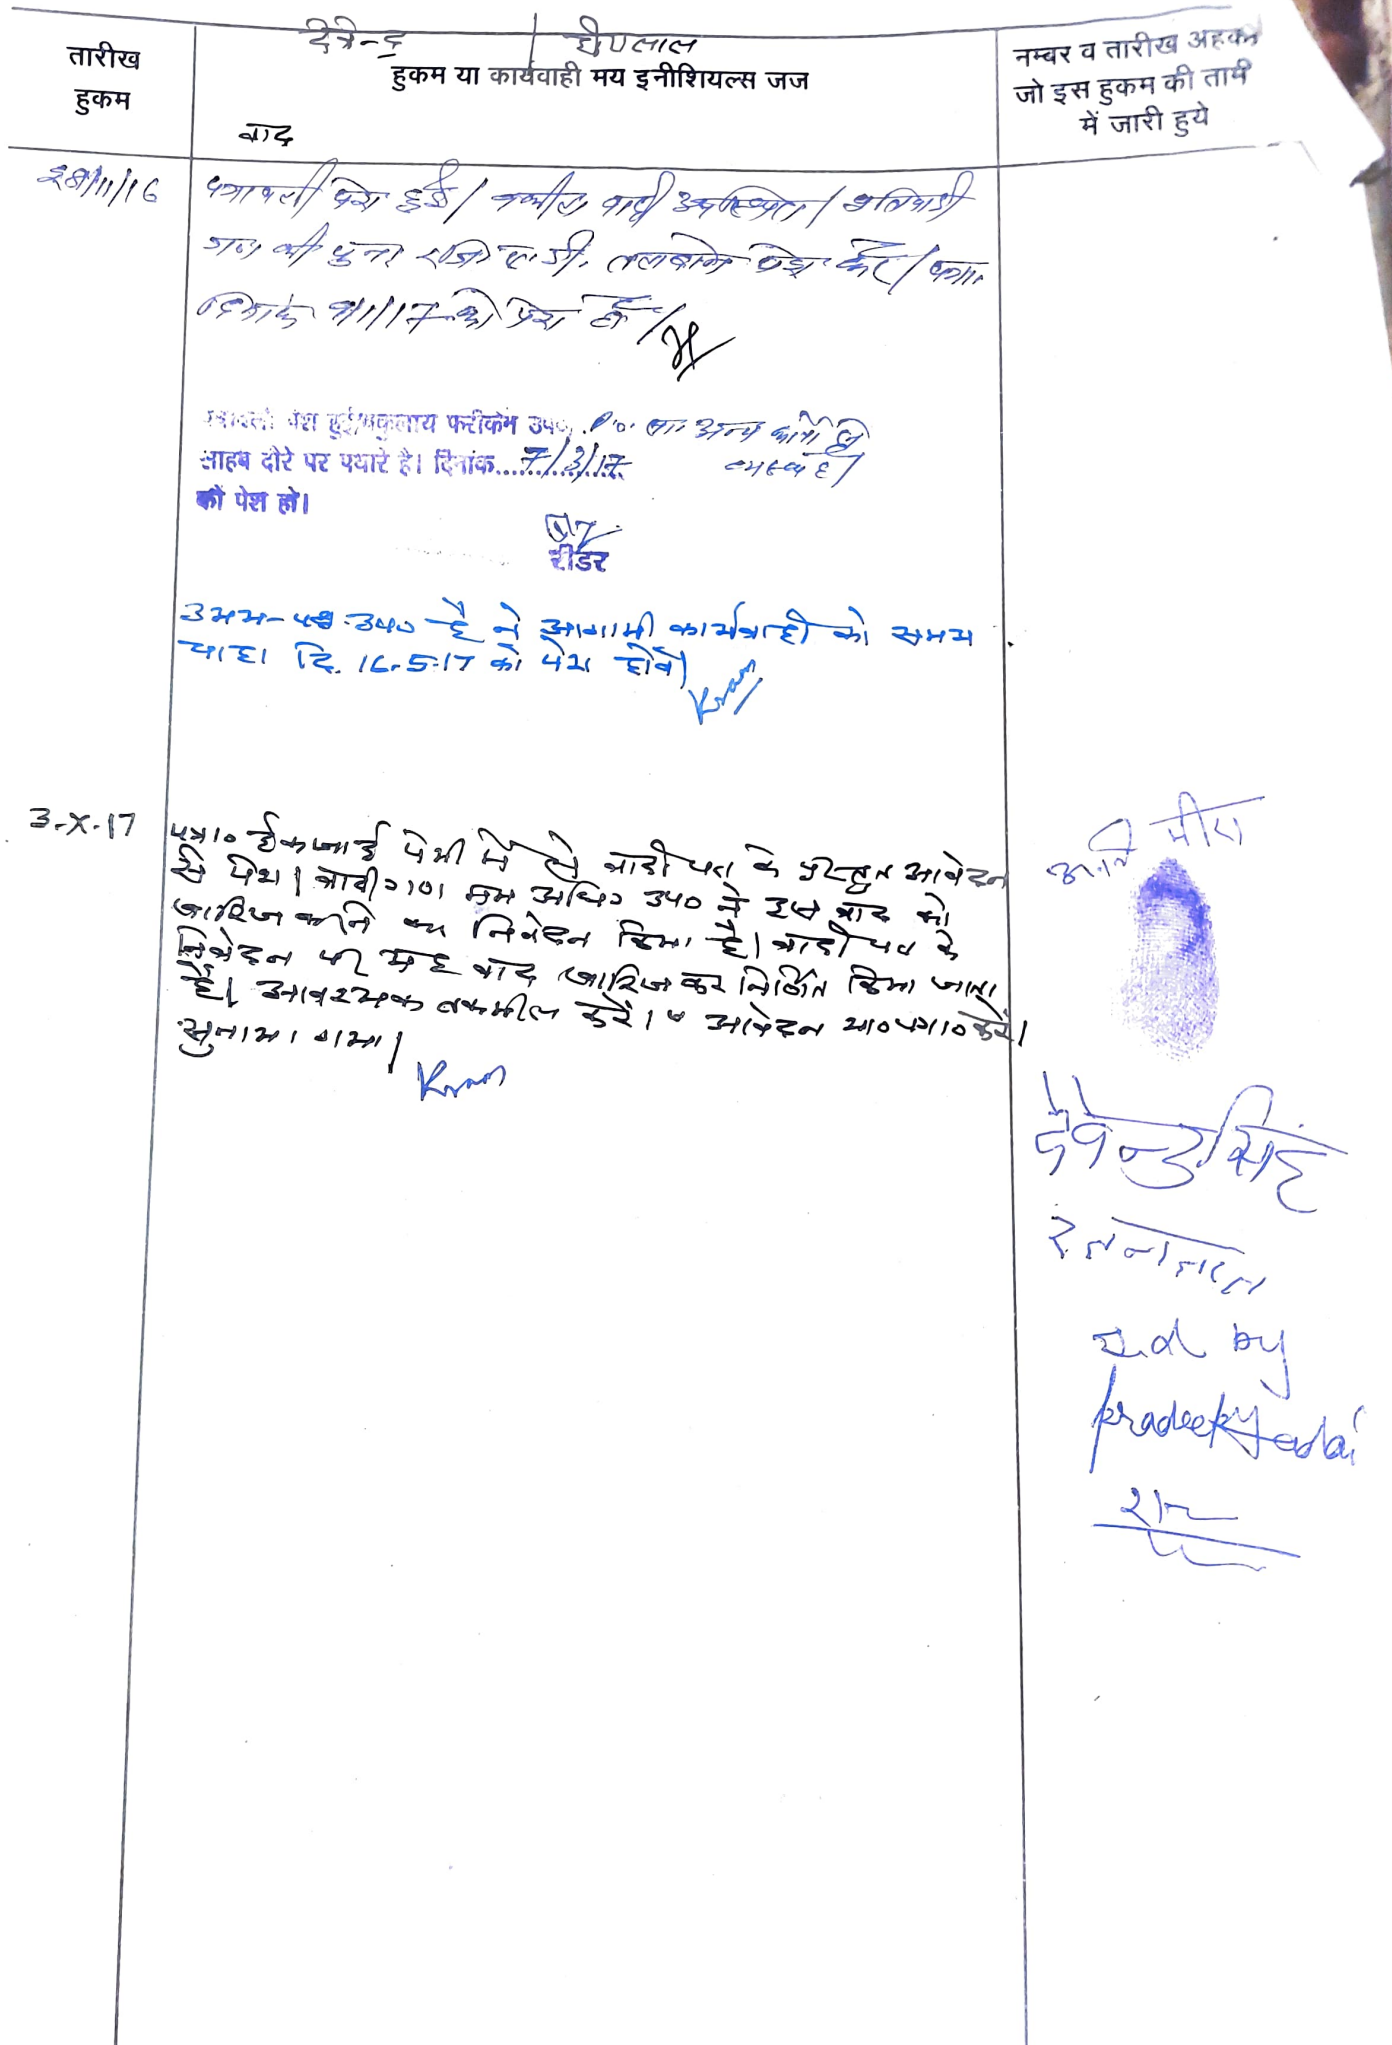 देवेन्द्र | घीसालाल
तारीख
हुकम
हुकम या कार्यवाही मय इनीशियल्स जज
नम्बर व तारीख अहकाम
जो इस हुकम की तामी
में जारी हुये
वाद
28/11/16 पत्रावली पेश हुई। वकील वादी उपस्थित। प्रतिवादी
गण की पुनः रजि० ए.डी. तलबाने पेश करें।
दिनांक 9/1/17 को पेश हो।
पत्रावली पेश हुई। वकुलाय फरीकेन उप०. अन्य कार्य
साहब दौरे पर पधारे है। दिनांक 7/3/17 व्यस्त है।
को पेश हो।
रीडर
उभय-पक्ष उप० है ने आगामी कार्यवाही को समय
चाहा दि. 16.5.17 को पेश होवे।
3-X-17 पत्रा० पेशी में से वादी पक्ष के प्रस्तुत आवेदन
से पेश। वादीगण मय अधि० उप० ने इस वाद को
खारिज करने का निवेदन किया है। वादी पक्ष के
निवेदन पर यह वाद खारिज कर निर्णित किया जाता
है। आवश्यक तकमील करें। आवेदन शा०पत्रा० करें।
सुनाया गया।
देवेन्द्रसिंह
रतनलाल
by